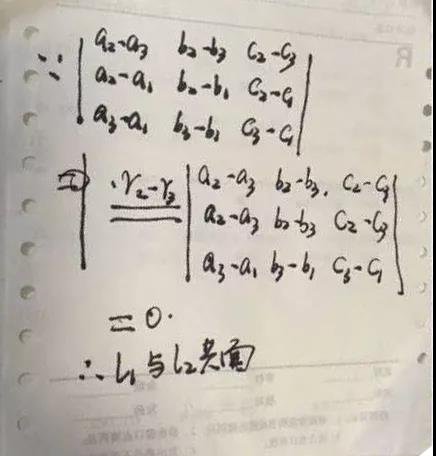 ∵ | a₂-a₃ b₂-b₃ c₂-c₃ |
| a₂-a₁ b₂-b₁ c₂-c₁ |
| a₃-a₁ b₃-b₁ c₃-c₁ |
r₂-r₃ | a₂-a₃ b₂-b₃ c₂-c₃ |
| a₂-a₃ b₂-b₃ c₂-c₃ |
| a₃-a₁ b₃-b₁ c₃-c₁ |
=0.
∴ L₁与L₂共面